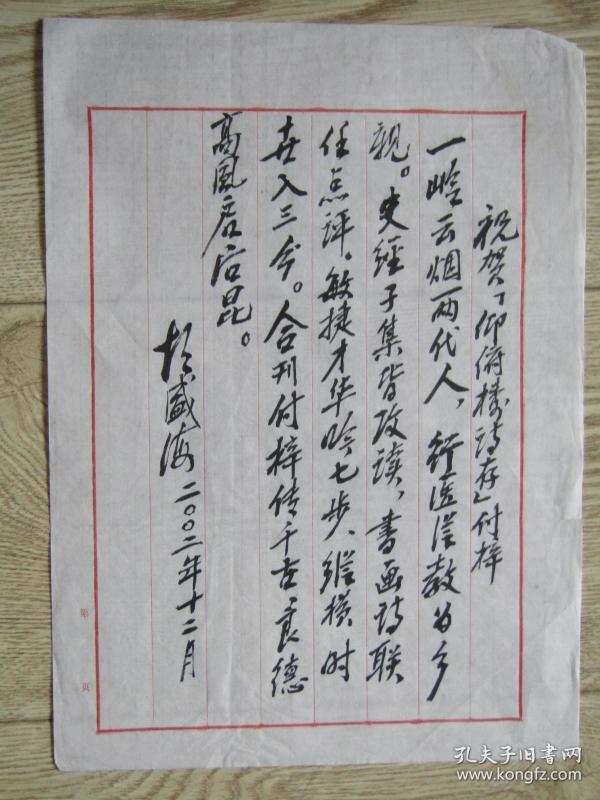 祝贺「仰俯楼诗存」付梓
一峪云烟两代人，行医从教为乡
亲。史经子集皆攻读，书画诗联
任点评。敏捷才华吟七步，纵横时
去入三今。合刊付梓传千古，良德
高风启后昆。
盛海 二〇〇二年十二月
第 页
孔夫子旧书网
www.kongfz.com